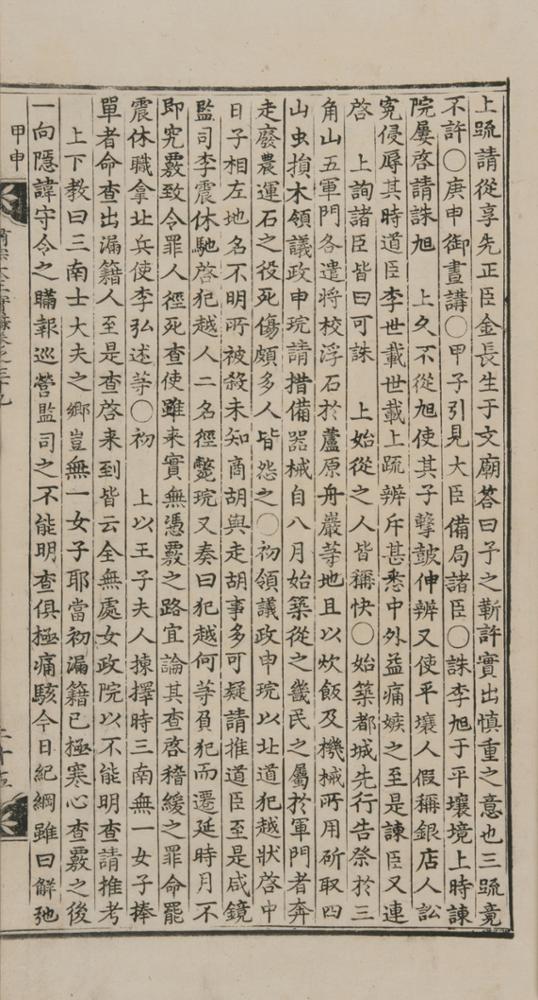 上䟽請從享先正臣金長生于文廟答曰予之靳許實出愼重之意也三䟽竟
不許○庚申御晝講○甲子引見大臣備局諸臣○誅李旭于平壤境上時諫
院屢啓請誅旭　上久不從旭使其子擊皷伸辨又使平壤人假稱銀店人訟
寃侵辱其時道臣李世載世載上䟽辨斥甚悉中外益痛嫉之至是諫臣又連
啓　上詢諸臣皆曰可誅　上始從之人皆稱快○始築都城先行告祭於三
角山五軍門各遣將校浮石於蘆原舟巖等地且以炊飯及機械所用斫取四
山虫損木領議政申琓請措備器械自八月始築從之畿民之屬於軍門者奔
走廢農運石之役死傷頗多人皆怨之○初領議政申琓以北道犯越狀啓中
日子相左地名不明所被殺未知商胡與走胡事多可疑請推道臣至是咸鏡
監司李震休馳啓犯越人二名徑斃琓又奏曰犯越何等負犯而遷延時月不
卽究覈致令罪人徑死查使雖来實無憑覈之路宜論其查啓稽緩之罪命罷
震休職拿北兵使李弘述等○初　上以王子夫人揀擇時三南無一女子捧
單者命查出漏籍人至是查啓来到皆云全無處女政院以不能明查請推考
上下敎曰三南士大夫之鄕豈無一女子耶當初漏籍已極寒心查覈之後
一向隱諱守令之瞞報巡營監司之不能明查俱極痛駭今日紀綱雖曰解弛
甲申